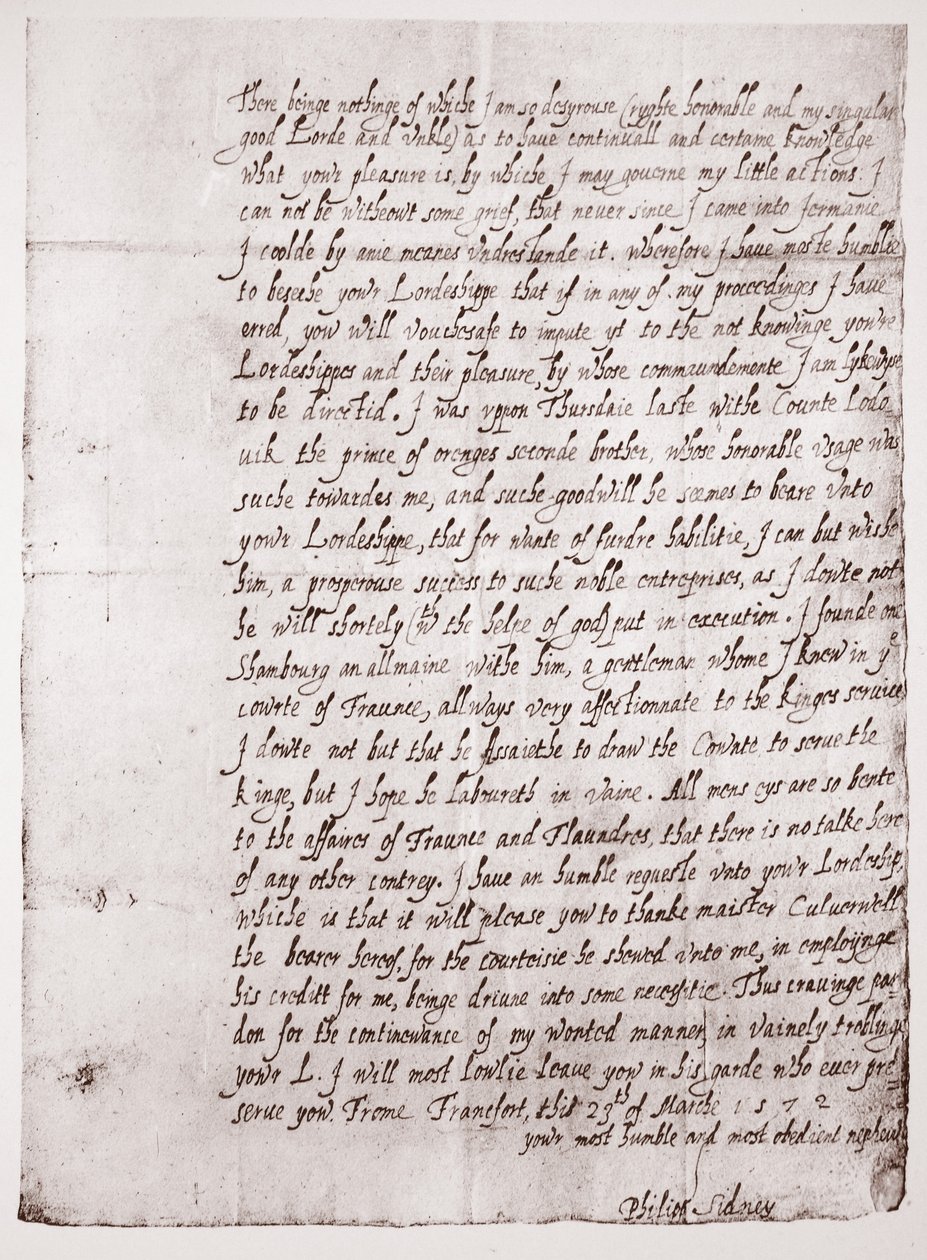 There beinge nothinge of whiche I am so desyrouse (ryghte honorable and my singular
good Lorde and vnkle) as to have continuall and certaine knowledge
what yowr pleasure is, by whiche I may governe my little actions. I
can not be witheowt some grief, that never since I came into Jermanie
I coolde by anie meanes vndrestande it. wherefore I have moste humblie
to beseche yowr Lordeshippe that if in any of my proceedinges I have
erred, yow will vouchesafe to impute yt to the not knowinge yowre
Lordeshippes and their pleasure, by whose commaundemente I am lykewyse
to be directid. I was vppon Thursdaie laste withe Counte Lodo-
uik the prince of orenges seconde brother, whose honorable vsage was
suche towardes me, and suche goodwill he seemes to beare vnto
yowr Lordeshippe, that for wante of furdre habilitie, I can but wishe
him, a prosperouse success to suche noble entreprises, as I dowte not
he will shortely (wth the helpe of god) put in execution. I founde one
Shambourg an allmaine withe him, a gentleman whome I knew in ye
cowrte of Fraunce, allways very affectionnate to the kinges service
I dowte not but that he assaiethe to draw the Cownte to serve the
kinge, but I hope he laboureth in vaine. All mens eys are so bente
to the affaires of Fraunce and Flaundres, that there is no talke here
of any other contrey. I have an humble requeste vnto yowr Lordeship,
whiche is that it will please yow to thanke maister Culverwell
the bearer hereof, for the courteisie he shewed vnto me, in employinge
his creditt for me, beinge driune into some necessitie. Thus cravinge par-
don for the continewance of my wonted manner, in vainely troblinge
yowr L. I will most lowlie leave yow in his garde who ever pre-
serve yow. Frome Francfort, this 23th of Marche 1572
yowr most humble and most obedient nephew
Philipp Sidney